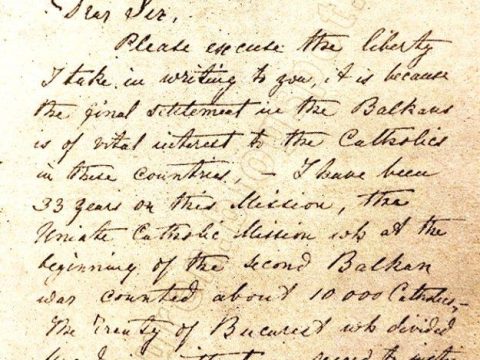 Dear Sir,
Please excuse the liberty
I take in writing to you, it is because
the final settlement in the Balkans
is of vital interest to the Catholics
in these countries, – I have been
33 years on this Mission, the
Uniate Catholic Mission wh at the
beginning of the second Balkan
war counted about 10 000 Catholics,–
The Treaty of Bucarest wh divided